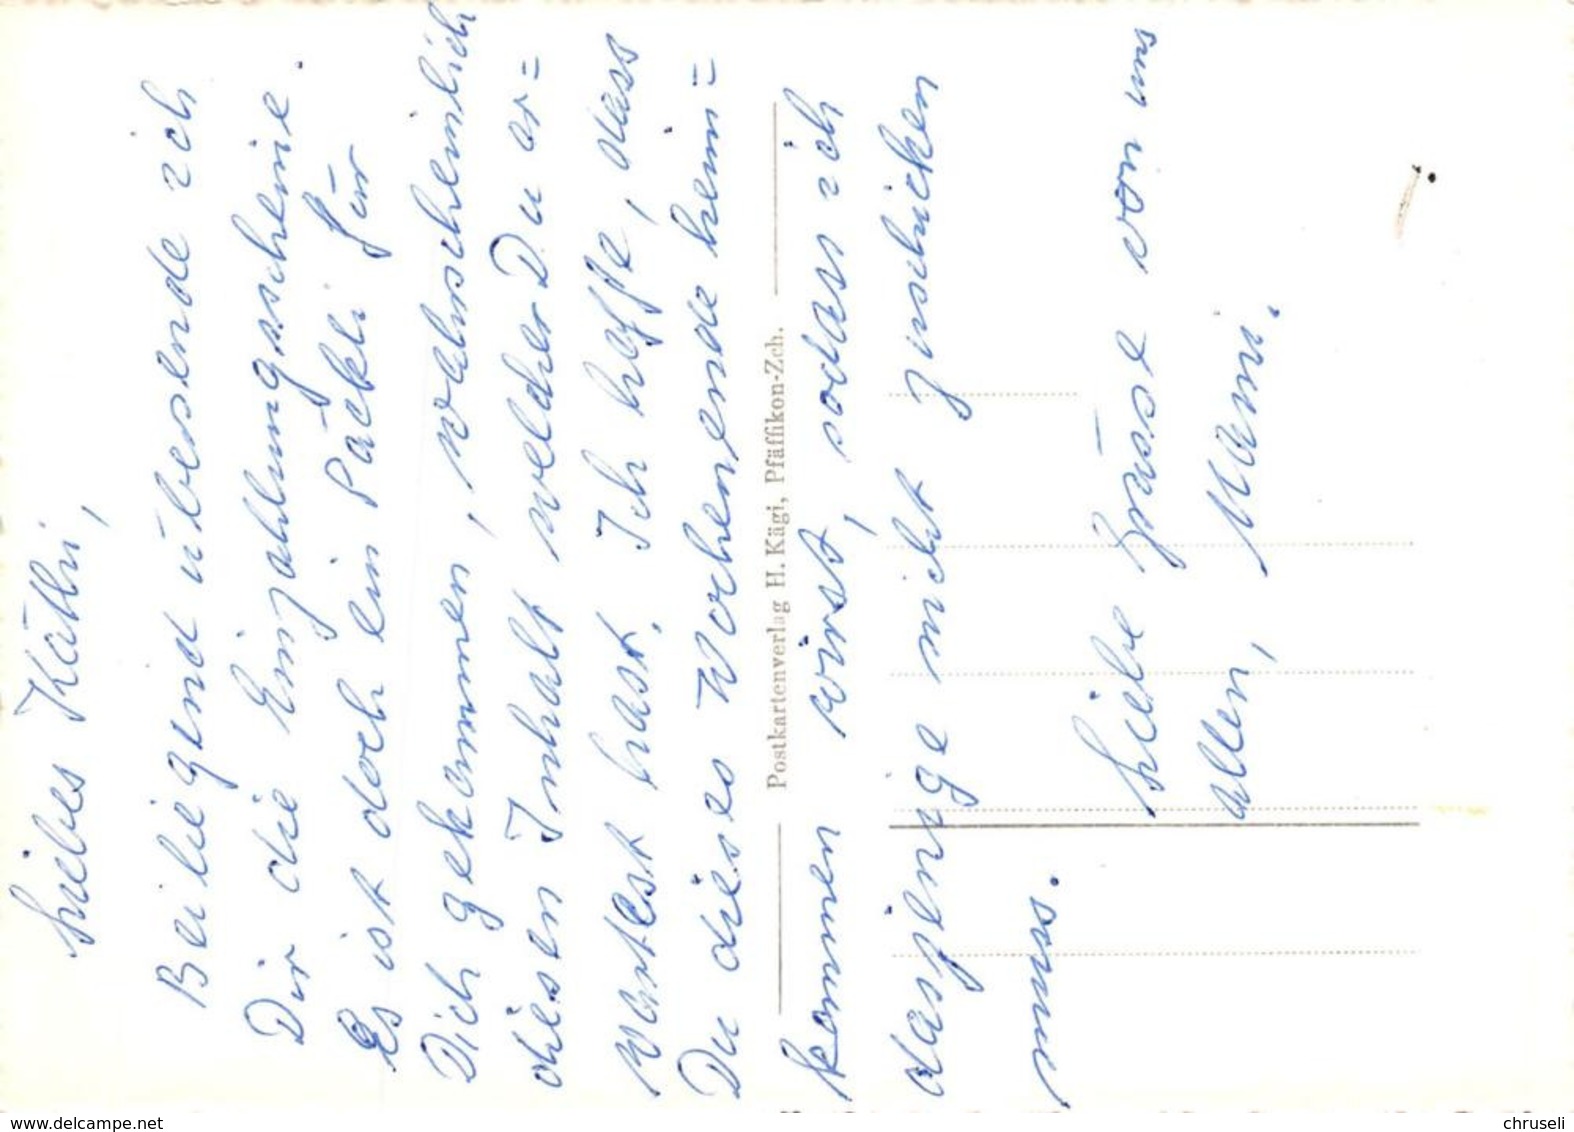 Liebes Käthi,
Beiliegend übersende ich
Dir die Einzahlungsscheine.
Es ist doch ein Päckli für
Dich gekommen, wahrscheinlich
diesen Inhalt welcher Du er=
wartest hast. Ich hoffe, dass
Du dieses Wochenende heim=
Postkartenverlag H. Kägi, Pfäffikon-Zch.
kommen wirst, sodass ich
dasjenige nicht zuschicken
muss.
Liebe Grüsse von uns
allen, Mami.
www.delcampe.net
chruseli